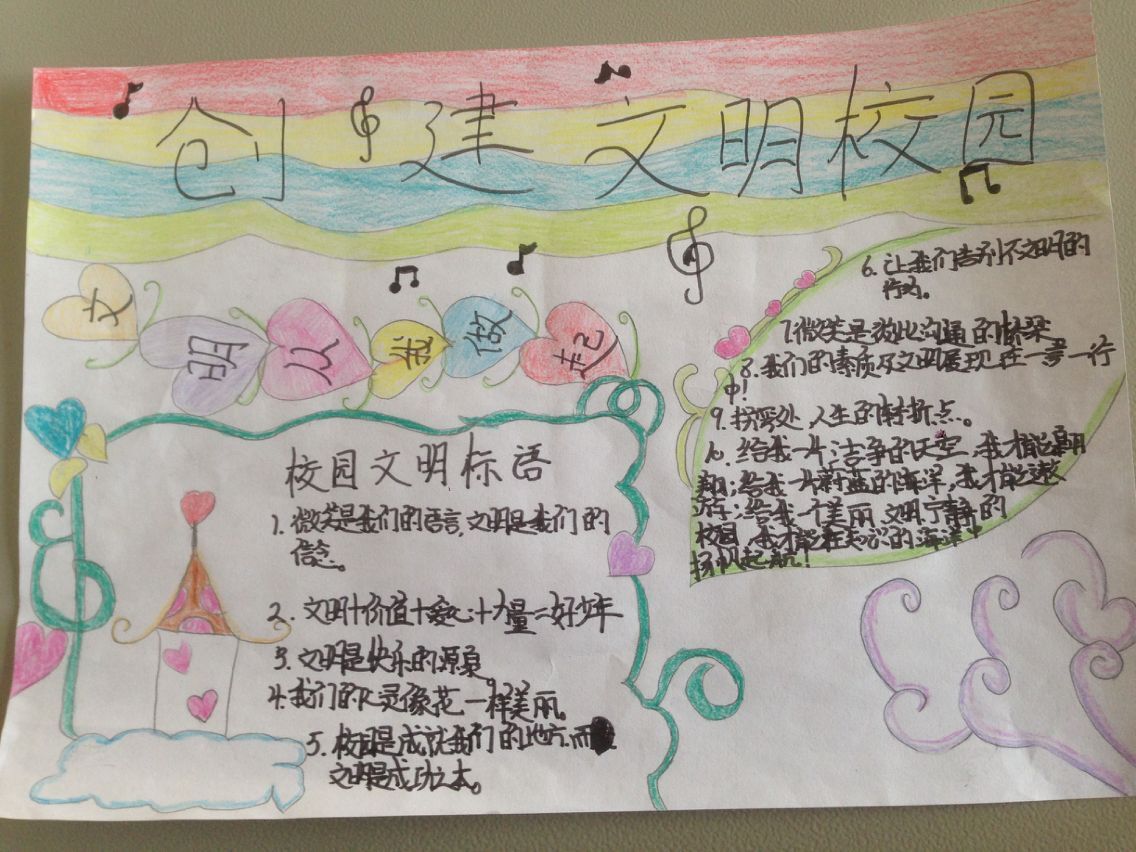 创建文明校园
文明从我做起
校园文明标语
1. 微笑是我们的语言,文明是我们的
信念。
2. 文明+价值+爱心+力量=好少年
3. 文明是快乐的源泉。
4. 我们的心灵像花一样美丽。
5. 校园是成就我们的地方,而
文明是成功之本。
6. 让我们告别不文明的
行为。
7. 微笑是彼此沟通的桥梁
8. 我们的素质及文明展现在一步一行
中!
9. 拐弯处,人生的转折点。
10. 给我一片洁净的天空,我才能翱
翔;给我一片蔚蓝的海洋,我才能遨
游;给我一个美丽文明宁静的
校园,我才能在知识的海洋中
扬帆起航!